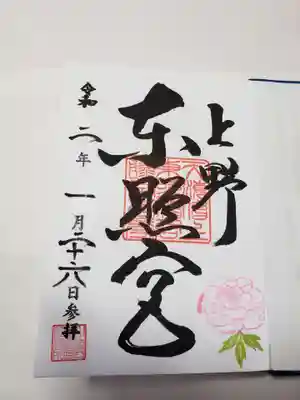 上野
東照宮
令和二年一月二十六日参拝